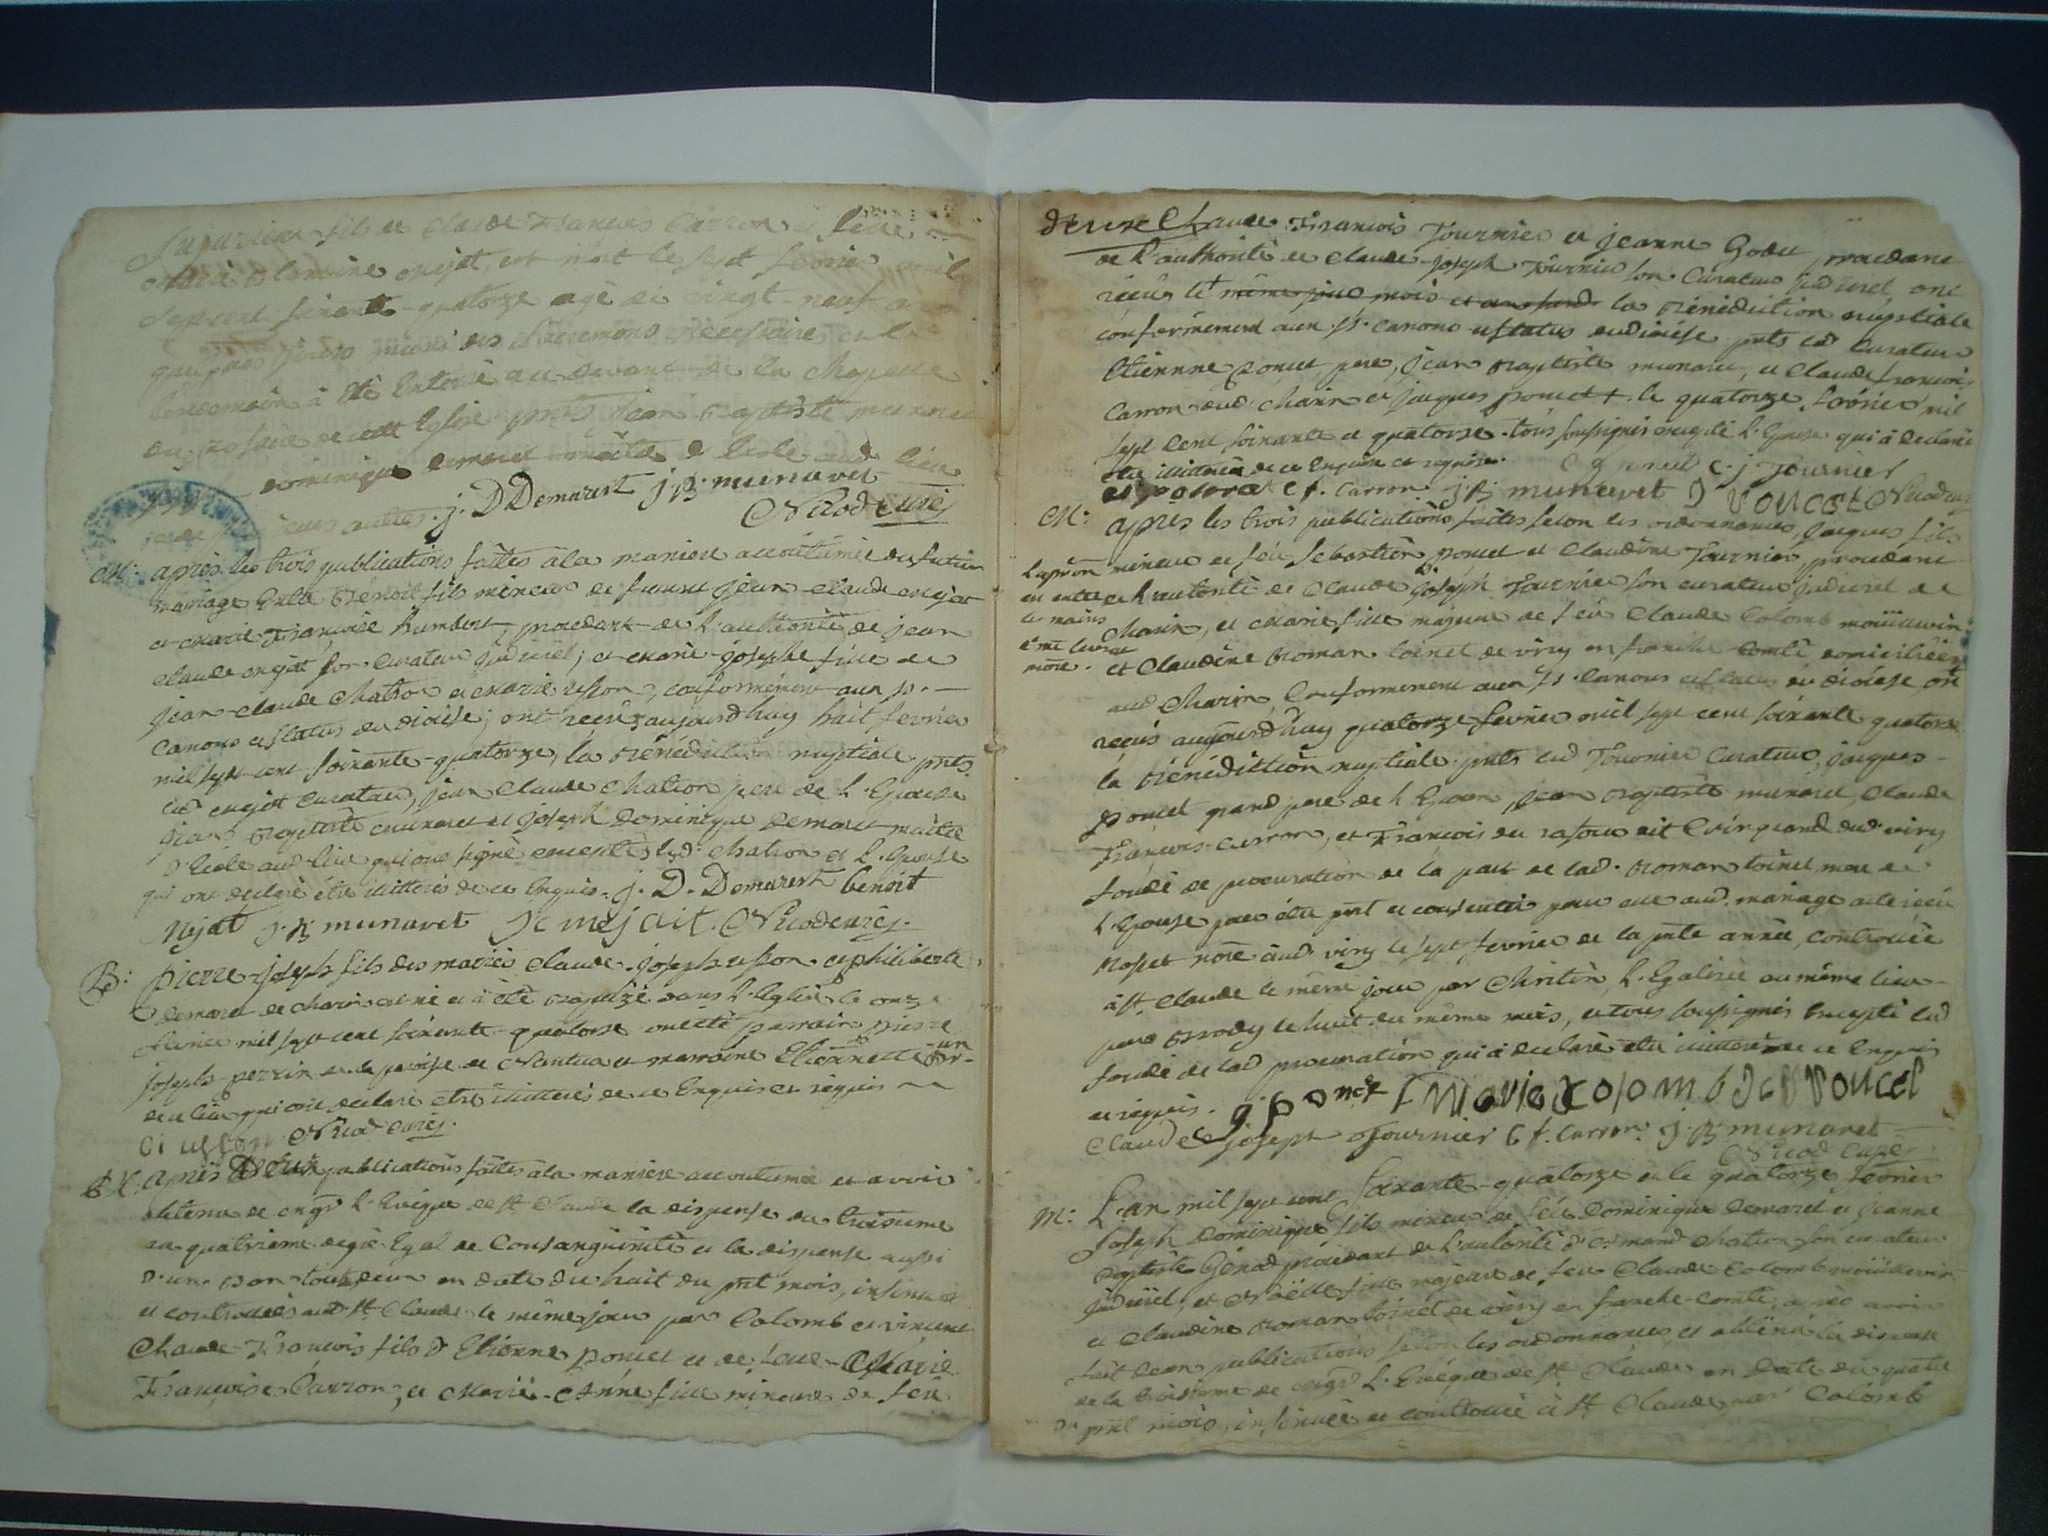 fils de Claude François Carron et
Marie Blandine mejat, est mort le sept fevrier mil
sept cent soixante-quatorze agé de vingt-neuf
quelques jours muni des Sacremens nécessaires et le
lendemain à été Enterré au devant de la Chapelle
du rosaire de cette Eglise prnts jean Baptiste munaret
dominique demaret maitre d'Ecole aud. lieu
autres. j. D Demarest j. B. munaret
Nicod curé
M: après les trois publications faittes à la maniere accoutumée du futur
mariage Entre Benoit fils mineur de furent jean-Claude mejat
et Marie Françoise humbert, procedant de l'authorité de jean
Claude mejat son Curateur judiciel; et Marie-josephe fille de
jean-Claude Chatron et Marie usson, conformément aux ss.
canons et status du diocèse; ont reçus aujourd'huy huit fevrier
mil sept cent soixante-quatorze, la Bénédiction nuptiale prnts
led mejat curateur, jean Claude Chation pere de l'Epouse
jean Baptiste munaret et joseph Dominique Demaret maitre
d'Ecole aud. lieu qui ont signé excepté led. Chation et l'Epouse
qui ont declaré étre illitterés de ce Enquis. j. D. Demarest benoit
Mejat j. B munaret Nicod curé.
B: pierre-joseph fils des mariés Claude-joseph usson et philiberte
demaret de charix est né et à été Baptizé dans l'Eglise le onze
fevrier mil sept cent soixante-quatorze ont été parrain pierre
joseph perrin de la paroise de Nantua et marraine Etiennette
dud. lieu qui ont declaré etre illitterés de ce Enquis et requis
Cj usson Nicod curé.
M. après deux publications faittes à la maniere accoutumée et avoir
obtenu de mgr l'Evéque de st Claude la dispense du troisieme
au quatrieme degré Egal de Consanguinité et la dispense aussi
d'un Ban toutes deux en date du huit du prnt mois, insinuées
et controlées aud st Claude le même jour par Colomb et vincent
Claude-François fils d'Etienne poncet et de feue Marie
Françoise Carron, et Marie-Anne fille mineure de feu
deux Claude François Tournier et jeanne Godet procedant
de l'authorité de Claude-joseph Tournier son Curateur judiciel, ont
reçus le même jour mois et an susd. la Bénédiction nuptiale
conformément aux ss. canons et status du diocèse prnts led Curateur
Etienne poncet pere, jean Baptiste munaret, et Claude françois
Carron dud. charix et jaques poncet + le quatorze fevrier mil
sept cent soixante et quatorze tous soussignés excepté l'Epouse qui à declaré
étre illiterée de ce Enquise et requise. c. j Tournier
c f. Carron j. B munaret J PONCET Nicod curé
M: après les trois publications faittes selon les ordonnances, jaques fils
mineur de feu Sebastien poncet et Claudine Tournier, procedant
de l'autorité de Claude joseph Tournier son curateur judiciel de
Charix, et Marie fille majeure de feu Claude Colomb
et Claudine Roman toinet de viry en franche-Comté domiciliée
aud Charix Conformement aux ss. Canons et status du diocèse, ont
reçus aujourd'huy quatorze fevrier mil sept cent soixante quatorze
la Bénédiction nuptiale prnts led Tournier Curateur, jaques
poncet grand pere de l'Epoux, jean Baptiste munaret, Claude
François Carron, et François du rafour dit Coin grand dud. viry
fondé de procuration de la part de lad. Roman toinet mere de
l'Epouse pour étre prnt et consentir pour elle aud. mariage acte reçu
Rosset nore aud. viry le sept fevrier de la prnte année, Controllée
à st Claude le même jour par Christin, l'Egalisée au même lieu
par Brody le huit du même mois, et tous soussignés Excepté led
fondé de lad procuration qui à declaré étre illitteré de ce Enquis
et requis. j. poncet Marie Xolomb JC PONCET
Claude joseph Tournier C f. Carron j. B munaret
Nicod Curé
M: L'an mil sept cent soixante-quatorze et le quatorze fevrier
Joseph Dominique fils mineur de feu Dominique Demaret et jeanne
Baptiste Génod procedant de l'autorité d'Armand Chation son curateur
judiciel; et Noëlle fille majeure de feu Claude Colomb
et Claudine Roman toinet de viry en franche-comté, après avoir
fait deux publications selon les ordonnances, et obtenu la dispense
de la troisieme de mgr l'Evéque de st Claude en date du quatre
du prnt mois, insinuée et controllée à st Claude par Colomb